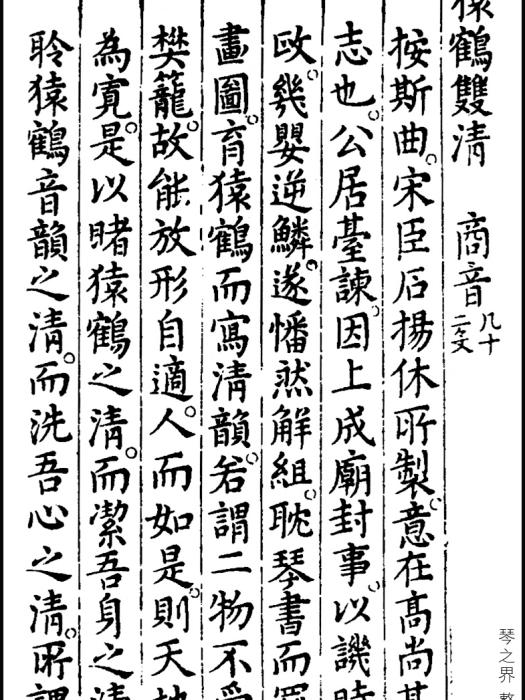 猿鶴雙清 商音 凡十二段
按斯曲。宋臣石揚休所製。意在高尚其
志也。公居臺諫。因上成廟封事。以譏時
政。幾嬰逆鱗。遂憣然解組。耽琴書而
畫圖。育猿鶴而寫清韻。若謂二物不受
樊籠。故能放形自適。人而如是。則天地
為寬。是以睹猿鶴之清。而潔吾身之清
聆猿鶴音韻之清。而洗吾心之清。所謂
琴之界